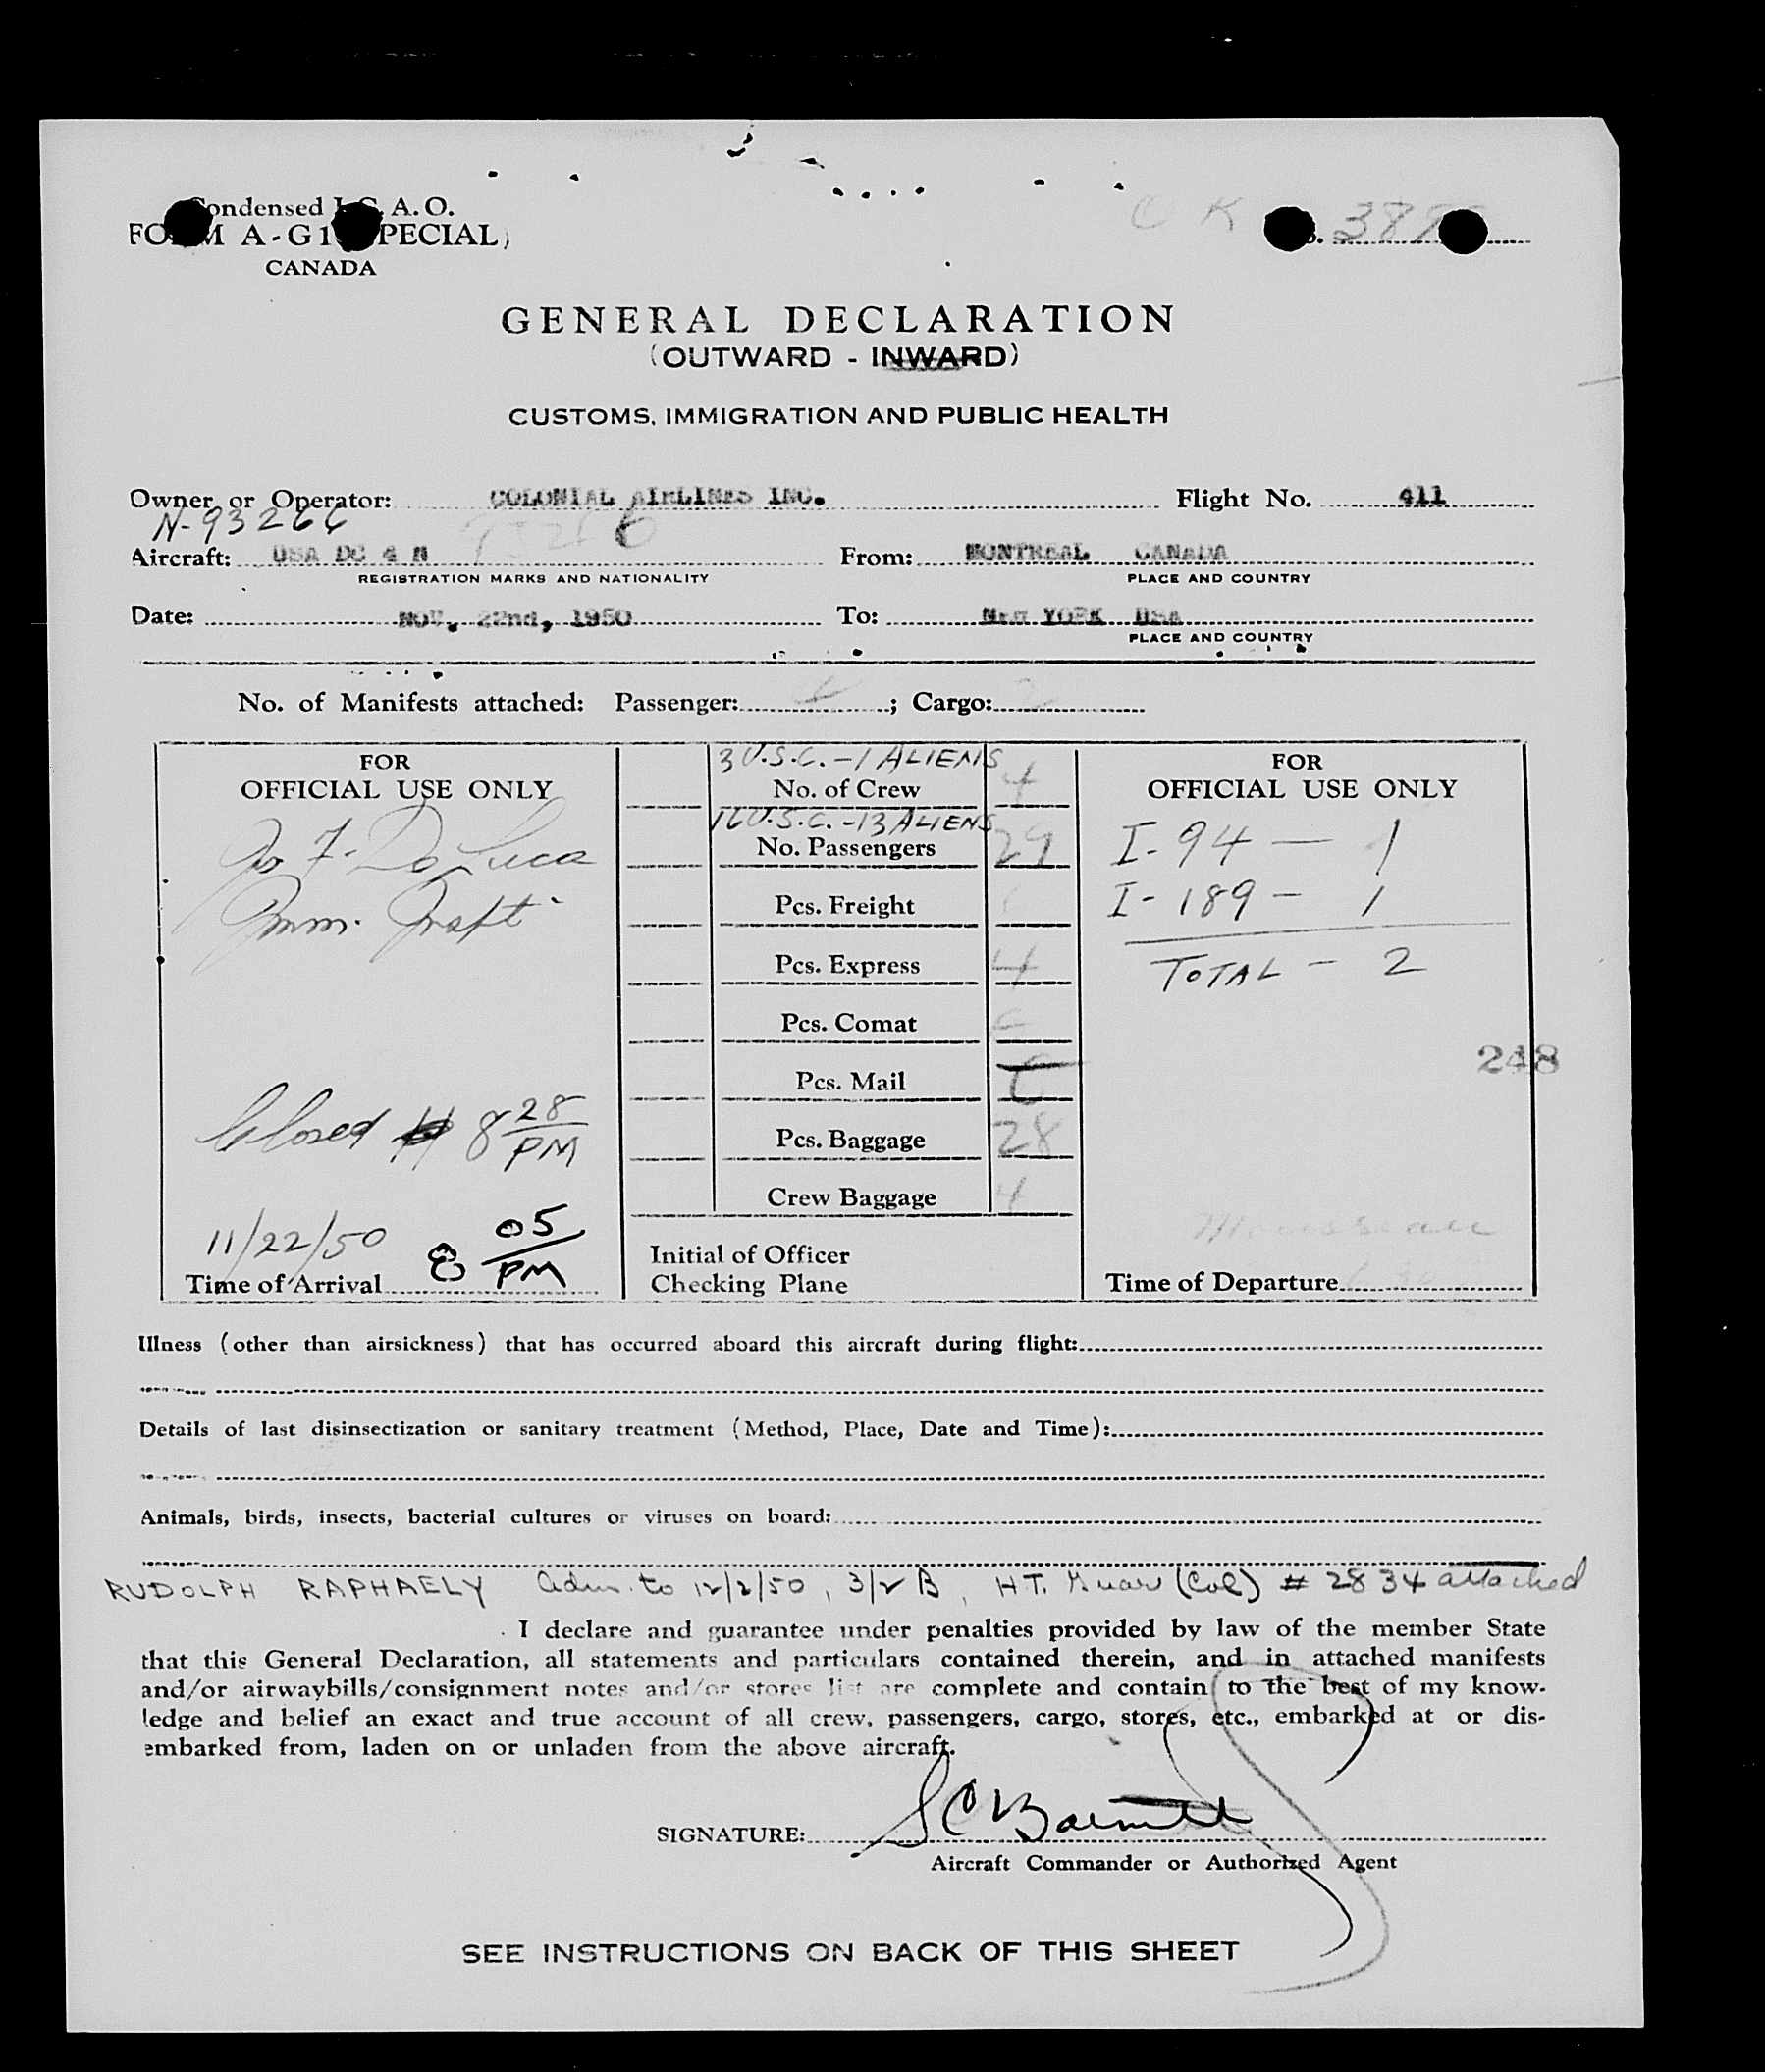 Condensed I.C.A.O.
FORM A-G1 (SPECIAL)
CANADA
C K
GENERAL DECLARATION
(OUTWARD - INWARD)
CUSTOMS, IMMIGRATION AND PUBLIC HEALTH
Owner or Operator: COLONIAL AIRLINES INC. Flight No. 411
N-93266
Aircraft: USA DC 4 N From: MONTREAL CANADA
REGISTRATION MARKS AND NATIONALITY PLACE AND COUNTRY
Date: NOV. 22nd, 1950 To: NEW YORK USA
PLACE AND COUNTRY
No. of Manifests attached: Passenger: ; Cargo:
FOR 3 U.S.C. - 1 ALIENS FOR
OFFICIAL USE ONLY No. of Crew 4 OFFICIAL USE ONLY
16 U.S.C. - 13 ALIENS
No. Passengers 29 I-94 — 1
Pcs. Freight I-189 — 1
Pcs. Express 4 TOTAL — 2
Pcs. Comat
248
Pcs. Mail
Closed 8 28 PM Pcs. Baggage 28
Crew Baggage 4
11/22/50 8 05 PM
Initial of Officer
Time of Arrival Checking Plane Time of Departure
Illness (other than airsickness) that has occurred aboard this aircraft during flight:
Details of last disinsectization or sanitary treatment (Method, Place, Date and Time):
Animals, birds, insects, bacterial cultures or viruses on board:
RUDOLPH RAPHAELY adm. to 12/2/50, 3/2 B, HT. (Col) # 2834 attached
I declare and guarantee under penalties provided by law of the member State
that this General Declaration, all statements and particulars contained therein, and in attached manifests
and/or airwaybills/consignment notes and/or stores list are complete and contain to the best of my know-
ledge and belief an exact and true account of all crew, passengers, cargo, stores, etc., embarked at or dis-
embarked from, laden on or unladen from the above aircraft.
SIGNATURE:
Aircraft Commander or Authorized Agent
SEE INSTRUCTIONS ON BACK OF THIS SHEET